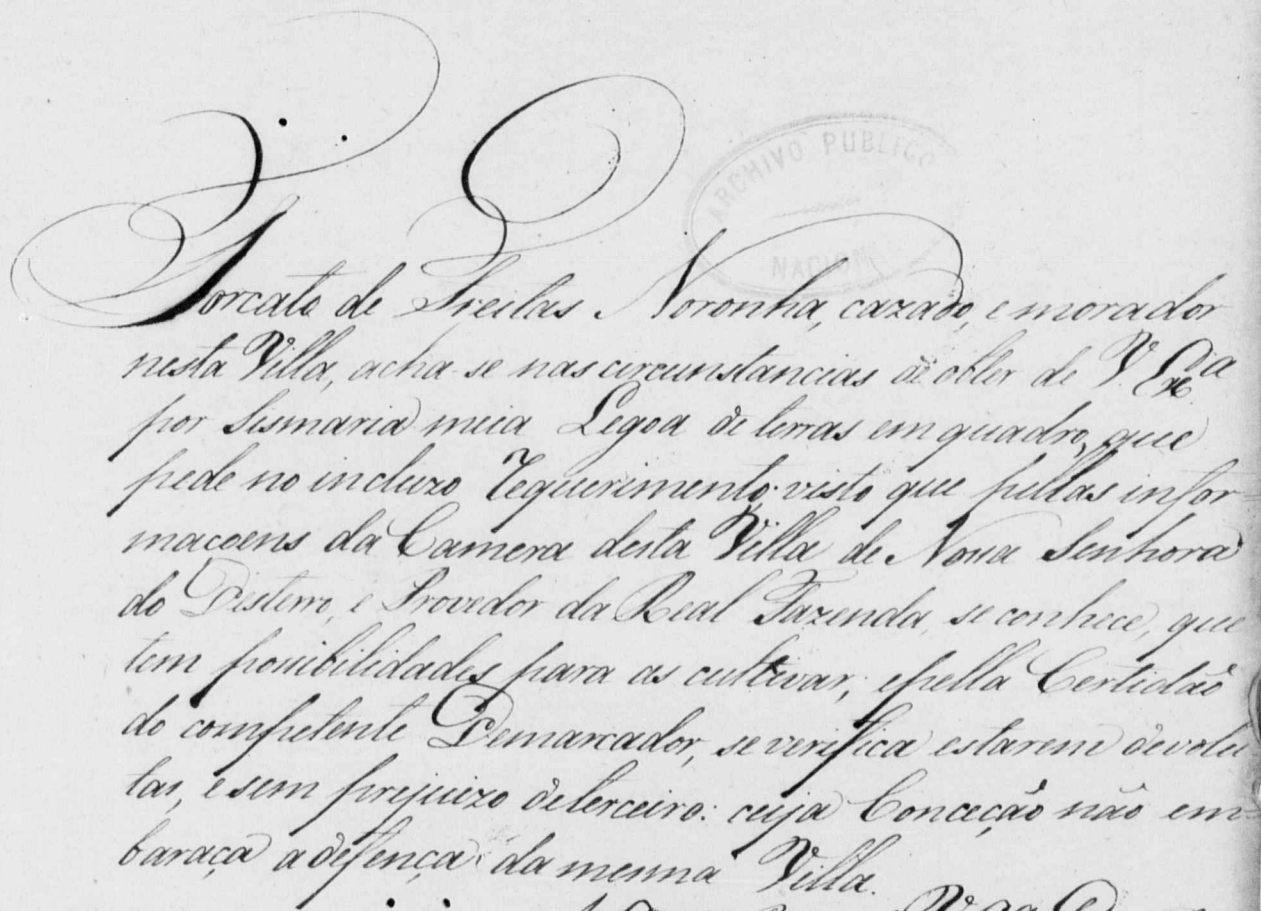 ARCHIVO PUBLICO
NACION
Torcato de Freitas Noronha, cazado, e morador
nesta Villa, acha-se nas circunstancias de obter de V. Ex.ª
por Sismaria meia Legoa de terras em quadro, que
pede no incluzo Requerimento; visto que pellas infor=
macoens da Camera desta Villa de Nossa Senhora
do Disterro, e Provedor da Real Fazenda, se conhece, que
tem possibilidades para as cultivar; e pella Certidão
do competente Demarcador, se verifica estarem devolu
tas, e sem prejuizo de terceiro: cuja Conceção não em=
baraça a defença da mesma Villa.